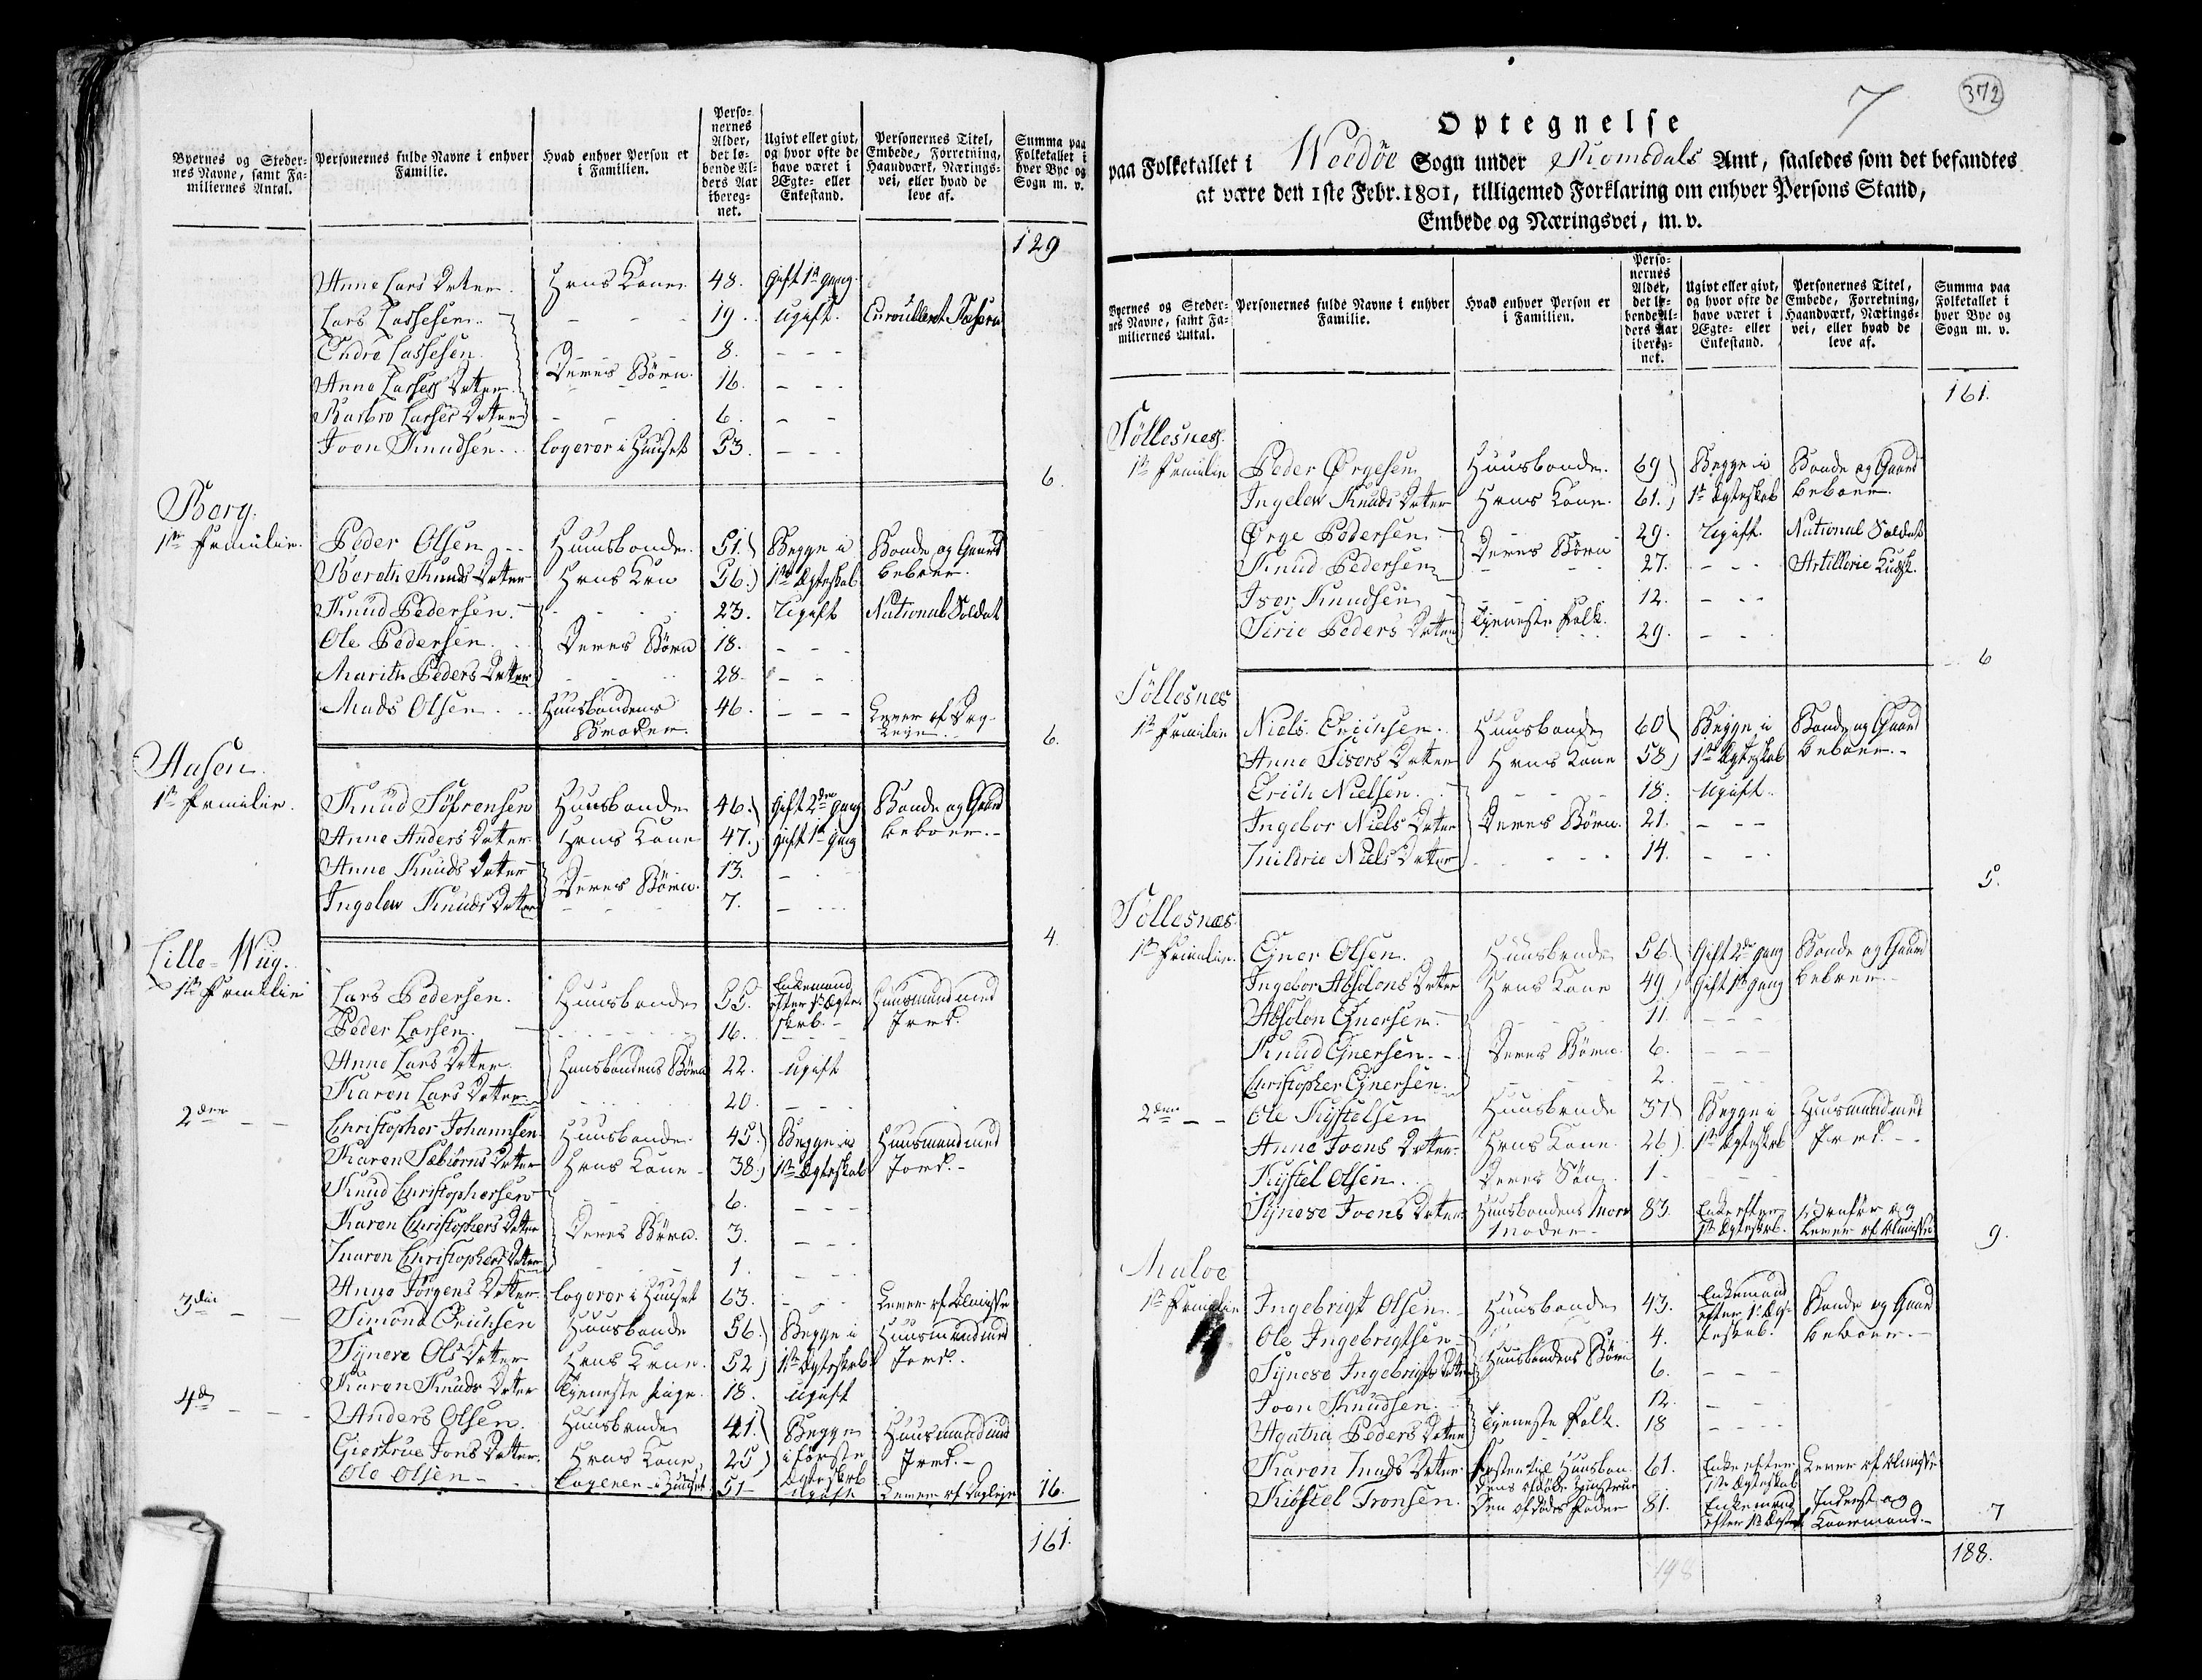 Byernes og Steder-
nes Navne, samt Fa-
miliernes Antal.
Personernes fulde Navne i enhver
Familie.
Hvad enhver Person er
i Familien.
Perso-
nernes
Alder,
det lø-
bende Al-
ders Aar
ibereg-
net.
Ugivt eller givt,
og hvor ofte de
have været i
Ægte- eller
Enkestand.
Personernes Titel,
Embede, Forretning,
Haandværk, Nærings-
vei, eller hvad de
leve af.
Summa paa
Folketallet i
hver Bye og
Sogn m. v.
129
Anne Lars Datter. Hans Kone 48. Gift 1te gang.
Lars Lassesen - - - 19. ugift. Enroulleret
Endre Lassesen. 8. - - -
Anna Lasses Datter Deres Børn. 16. - - -
Barbro Lasses Datter - - 6. - -
Joen Knudsen. Logerer i Huuset 53. - - -
6.
Borg.
1te Familie. Peder Olsen Huusbonde. 51. Begge i Bonde og Gaard
Bereth Knuds Datter Hans Kone 56. 1te Ægteskab beboer.
Knud Pedersen. 23. Ugift National Soldat
Ole Pedersen. Deres Børn 18. - - -
Marith Peders Datter 28. - -
Mads Olsen Huusbondens 46. - - - Lever af Dag-
Broder. Leye.
6.
Aasen.
1te Familie. Knud Søfrensen Huusbonde 46. Gift 2den gang Bonde og Gaard
Anne Anders Datter Hans Kone 47. Gift 1te gang beboer.-
Anne Knuds Datter 13. -
Ingelew Knuds Datter Deres Børn. 7. - ...
4.
Lille-Wiig.
1te Familie Lars Pedersen. Huusbonde 55. Enkemand
efter 1te Ægte-
skab.- Huusmand med
Jord.
Peder Larsen. 16.
Anne Lars Datter Huusbondens Børn 22. ugift
Karen Lars Datter 20. - - -
2den - - Christopher Johannsen Huusbonde 45. Begge i Huusmand med
Karen Sæbiørns Datter Hans Kone 38. 1te Ægteskab Jord.-
Knud Christophersen 6. - - -
Karen Christophers Datter Deres Børn. 3. - - -
Christophers Datter 1. - - -
Anne Jørgens Datter Logerer i Huuset 63. - - - Lever af Almisse
3die - - Simond Erichsen Huusbonde 56. Begge i Huusmand med
Syneve Ols Datter Hans Kone. 52. 1te Ægteskab Jord.
Karen Knuds Datter Tjeneste Pige. 18. ugift
4de - - - Anders Olsen. Huusbonde 41. Begge Huusmand med
Giertrue Jons Datter. Hans Kone 25 i første Jord.-
Ægteskab
Ole Olsen - Logerer i Huuset 51 ugift Lever af Dagleje 16.
161.
7
372
Optegnelse
paa Folketallet i Weedøe Sogn under Romsdals Amt, saaledes som det befandtes
at være den 1ste Febr. 1801, tilligemed Forklaring om enhver Persons Stand,
Embede og Næringsvei, m. v.
Byernes og Steder-
nes Navne, samt Fa-
miliernes Antal.
Personernes fulde Navne i enhver
Familie.
Hvad enhver Person er
i Familien.
Perso-
nernes
Alder,
det lø-
bende Al-
ders Aar
ibereg-
net.
Ugivt eller givt,
og hvor ofte de
have været i
Ægte- eller
Enkestand.
Personernes Titel,
Embede, Forretning,
Haandværk, Nærings-
vei, eller hvad de
leve af.
Summa paa
Folketallet i
hver Bye og
Sogn m. v.
161.
Søllesnes.
1te Familie Peder Ørgesen Huusbonde. 69 Begge i Bonde og Gaard
Ingelew Knuds Datter Hans Kone. 61. 1te Ægteskab beboer.
Ørge Pedersen 29. Ugift. National Soldat
Knud Pedersen Deres Børn 27. - - - Artillerie Kudsk.
Iver Knudsen 12. - - -
Sirie Peders Datter Tjeneste Folk. 29. - -
6
Søllesnes
1te Familie Niels Erichsen. Huusbonde 60 Begge i Bonde og Gaard
Anne Sivers Datter Hans Kone 58 1te Ægteskab beboer.-
Erich Nielsen. 18. Ugift.
Ingebor Niels Datter Deres Børn. 21. - - -
Niels Datter 14. - - -
5.
Søllesnæs.
1te Familie. Ejner Olsen. Huusbonde 56. Gift 2den gang Bonde og Gaard
Ingebor Absolons Datter Hans Kone 49 Gift 1te gang beboer.-
Absolon Ejnersen. 11. - - -
Knud Ejnersen. Deres Børn. 6. - - -
Christopher Ejnersen. 2. - -
2den - - Ole Kystelsen Huusbonde 37 Begge i Huusmand med
Anne Joens Datter Hans Kone. 26 1te Ægteskab Jord.- -
Kystel Olsen. Deres Søn. 1 -
Syneve Joens Datter Huusbondens Mor
moder 83. Enke efter
1te Ægteskab. Vanfør og
Lever af Almisse
9.
Maloe
1te Familie Ingebrigt Olsen. Huusbonde 43. Enkemand
efter 1te Æg-
teskab. Bonde og Gaard
beboer.-
Ole Ingebrigtsen 4.
Syneve Ingebrigts Datter Huusbondens Børn 6. - - -
Joen Knudsen. 12. - - -
Agatha Peders Datter Tjeneste Folk. 18 - - -
Karen Datter 61. Enke efter
1te Ægteskab Lever af Almisse
Kiøstel Tronsen. Den afdødes Fader 81. Enkemand
efter 1te Ægtesk. Inderst og
Kaarmand.- 7
198
188.